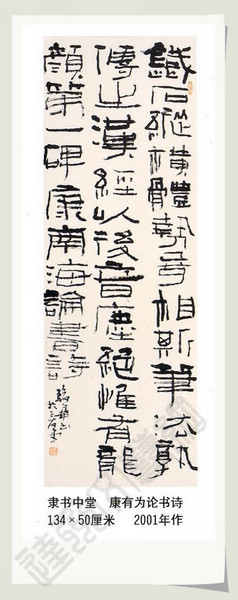 鐵石縱橫體埶奇相斯筆法孰
傳之漢經以後音塵絕惟有龍
顏第一碑康南海論書詩
隶书中堂　康有为论书诗
134×50厘米　2001年作